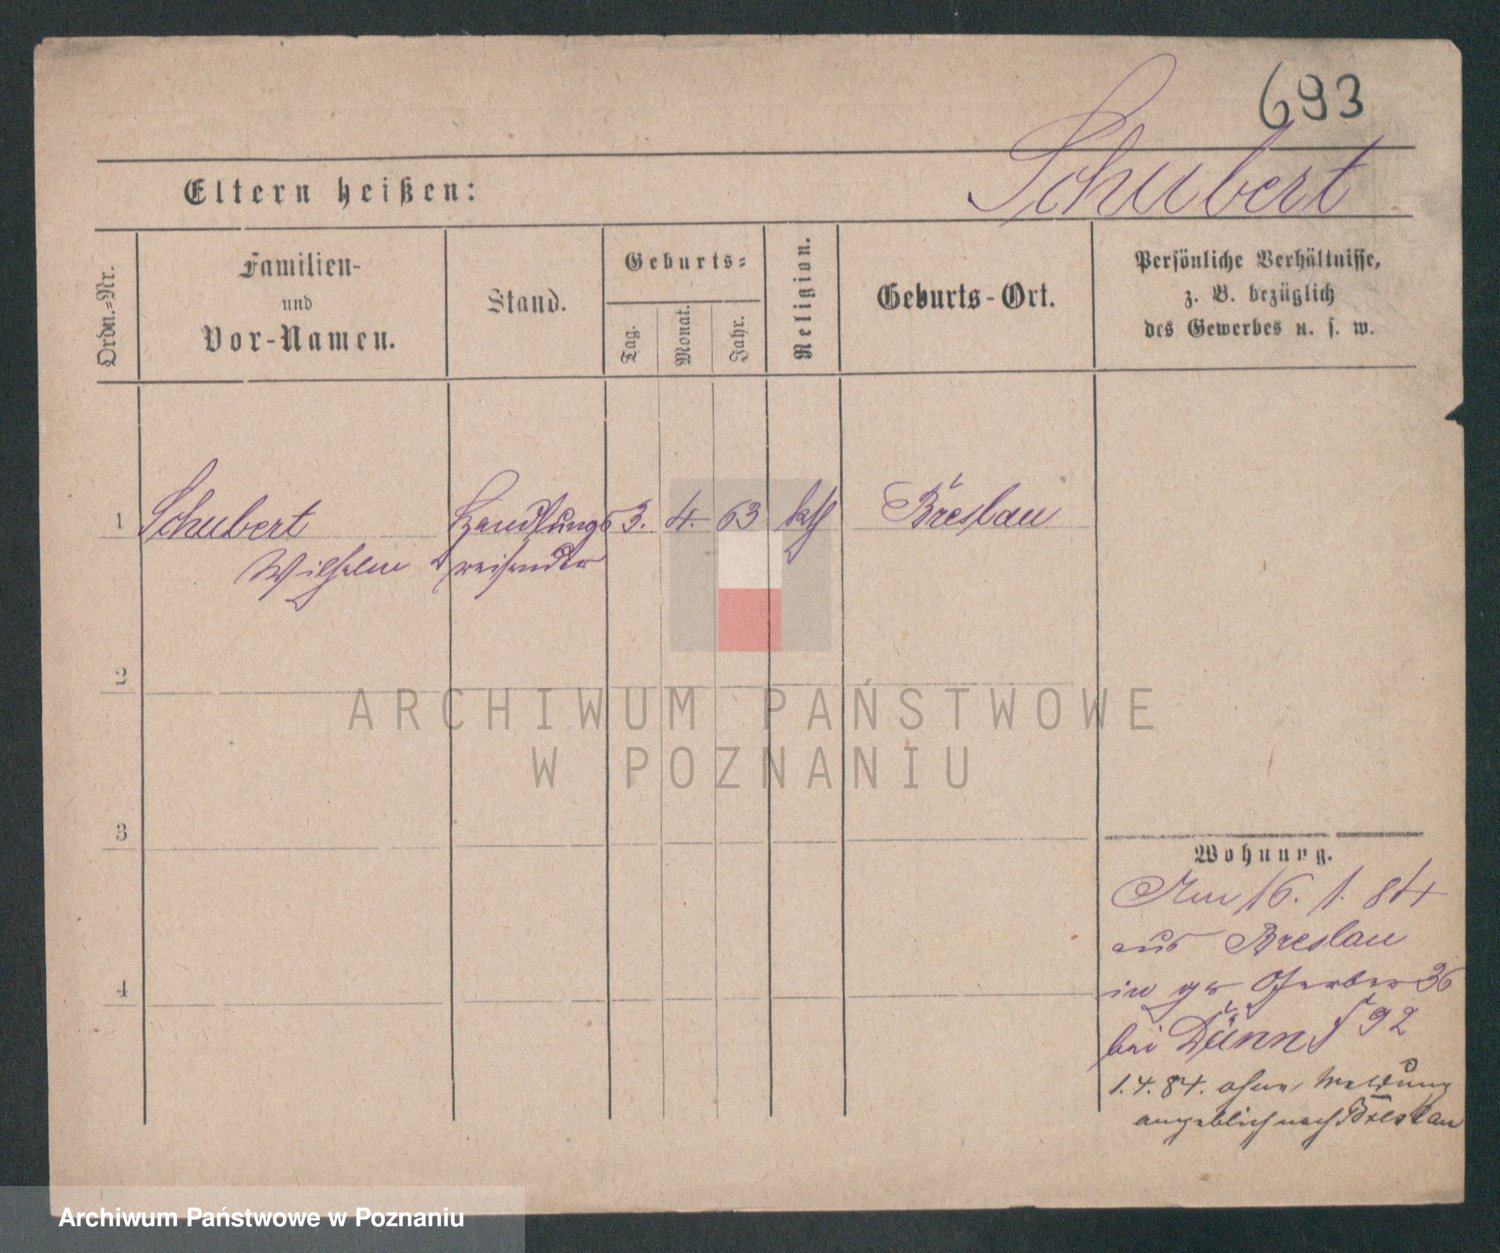 693
Schubert
Eltern heißen:
Ordn.-Nr.
Familien-
und
Vor-Namen.
Stand.
Geburts-
Tag.
Monat.
Jahr.
Religion.
Geburts-Ort.
Persönliche Verhältnisse,
z. B. bezüglich
des Gewerbes u. s. w.
1 Schubert Handlungs 3. 4. 63 kth Breslau
Wilhelm reisender
2
ARCHIWUM PAŃSTWOWE
W POZNANIU
3
Wohnung.
Am 16. 1. 84
aus Breslau
in gr Gerber 36
4
bei Dünn 92
1.4.84. ohne Meldung
angeblich nach Breslau
Archiwum Państwowe w Poznaniu